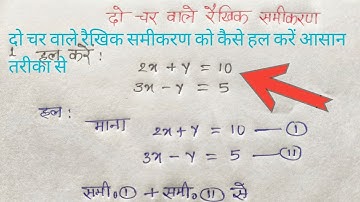 दो चर वाले रैखिक समीकरण
दो चर वाले रैखिक समीकरण को कैसे हल करें आसान
तरीका से
1 हल करें :
2x + y = 10
3x - y = 5
हल : माना
2x + y = 10 — (I)
3x - y = 5 — (II)
समी॰ (I) + समी॰ (II) से